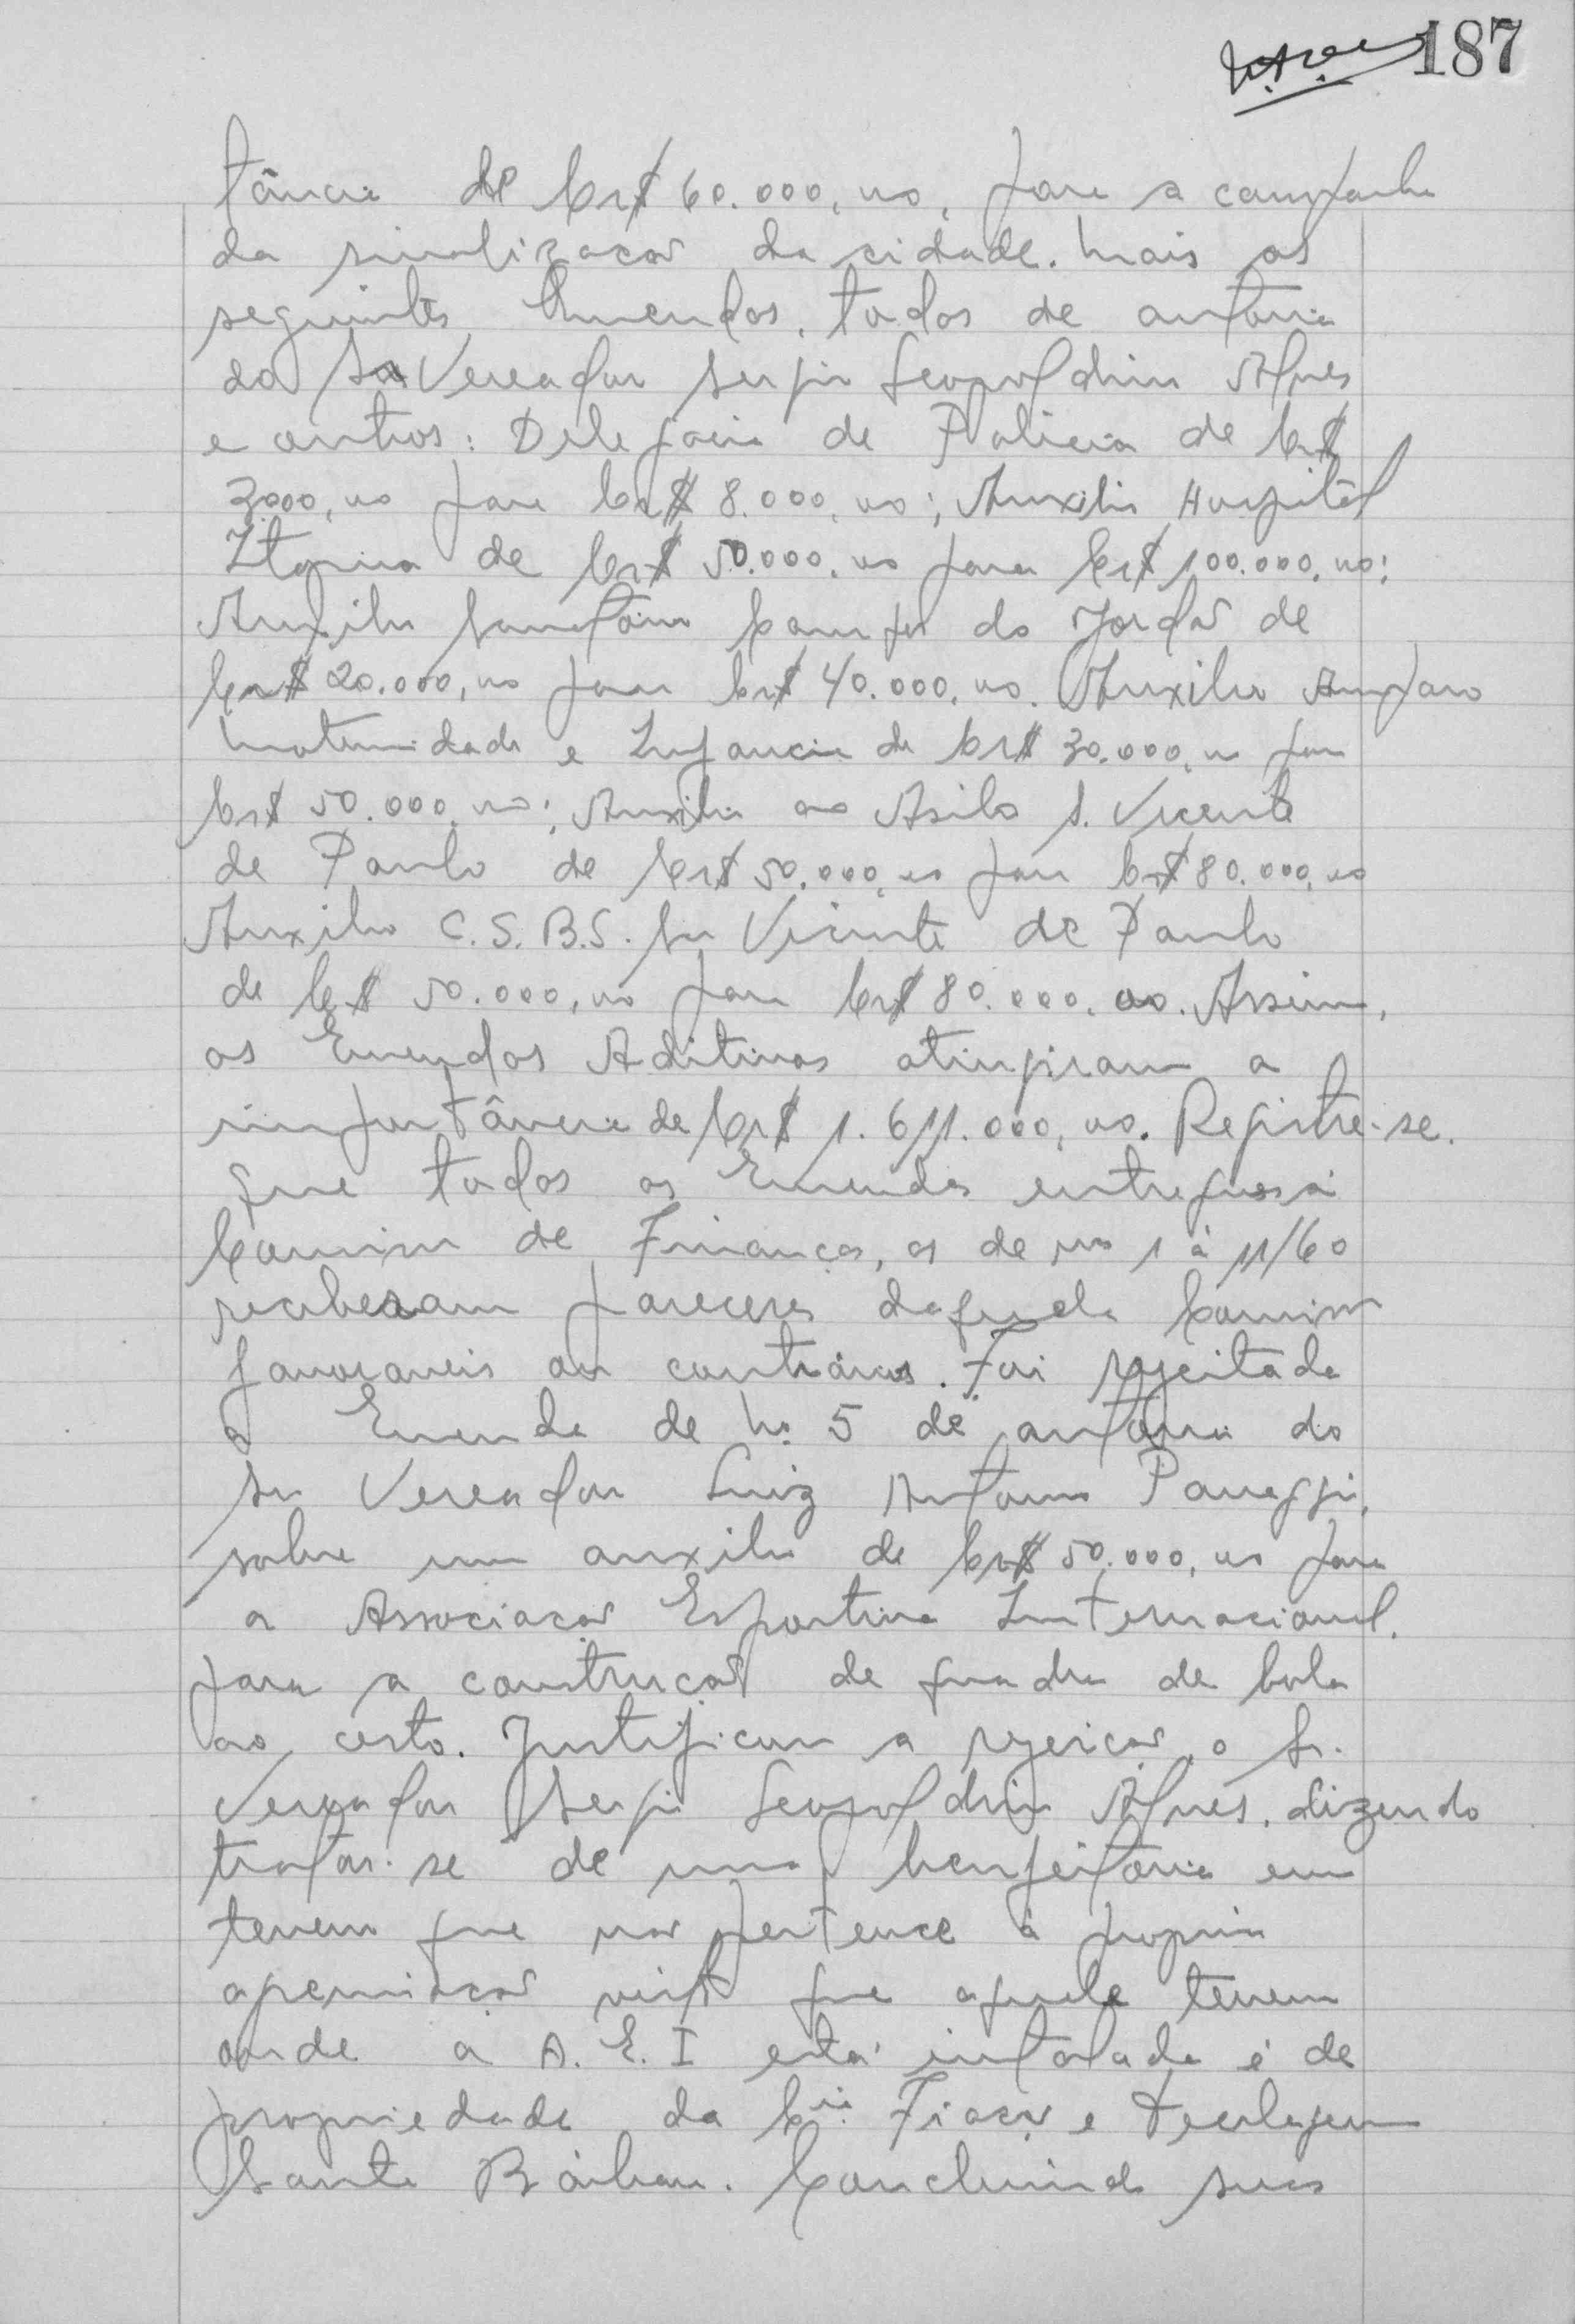 187
tância de Cr$ 60.000,00, para a campanha
da sinalização da cidade. Mais as
seguintes Emendas, todas de autoria
do Sr Vereador Sergio Leopoldino Alves
e outros: Delegacia de Policia de Cr$
3000,00 para Cr$ 8.000,00; Auxilio Hospital
de Cr$ 50.000,00 para Cr$ 100.000,00;
Auxilio Sanatório Campos do Jordão de
Cr$ 20.000,00 para Cr$ 40.000,00. Auxilio Amparo
Maternidade e Infancia de Cr$ 30.000,00 para
Cr$ 50.000,00; Auxilio ao Asilo S. Vicente
de Paulo de Cr$ 50.000,00 para Cr$ 80.000,00
Auxilio C.S.B.S. São Vicente de Paulo
de Cr$ 50.000,00 para Cr$ 80.000,00. Assim,
as Emendas Aditivas atingiram a
importância de Cr$ 1.611.000,00. Registre-se.
que todas as Emendas entregues à
Comissão de Finanças, as de nos 1 à 11/60
receberam pareceres daquela Comissão
favoraveis ou contrários. Foi rejeitada
a Emenda de No. 5 de autoria do
Sr Vereador Luiz Antonio Panaggio,
sobre um auxilio de Cr$ 50.000,00 para
a Associação Esportiva Internacional,
para a construção de quadra de bola
ao cesto. Justificou a rejeição, o Sr.
Vereador Sergio Leopoldino Alves, dizendo
tratar-se de uma benfeitoria em
terreno que não pertence à propria
agremiação visto que aquele terreno
onde a A.E.I está instalada é de
propriedade da Cia. Fiação e Tecelagem
Santa Bárbara. Concluindo suas